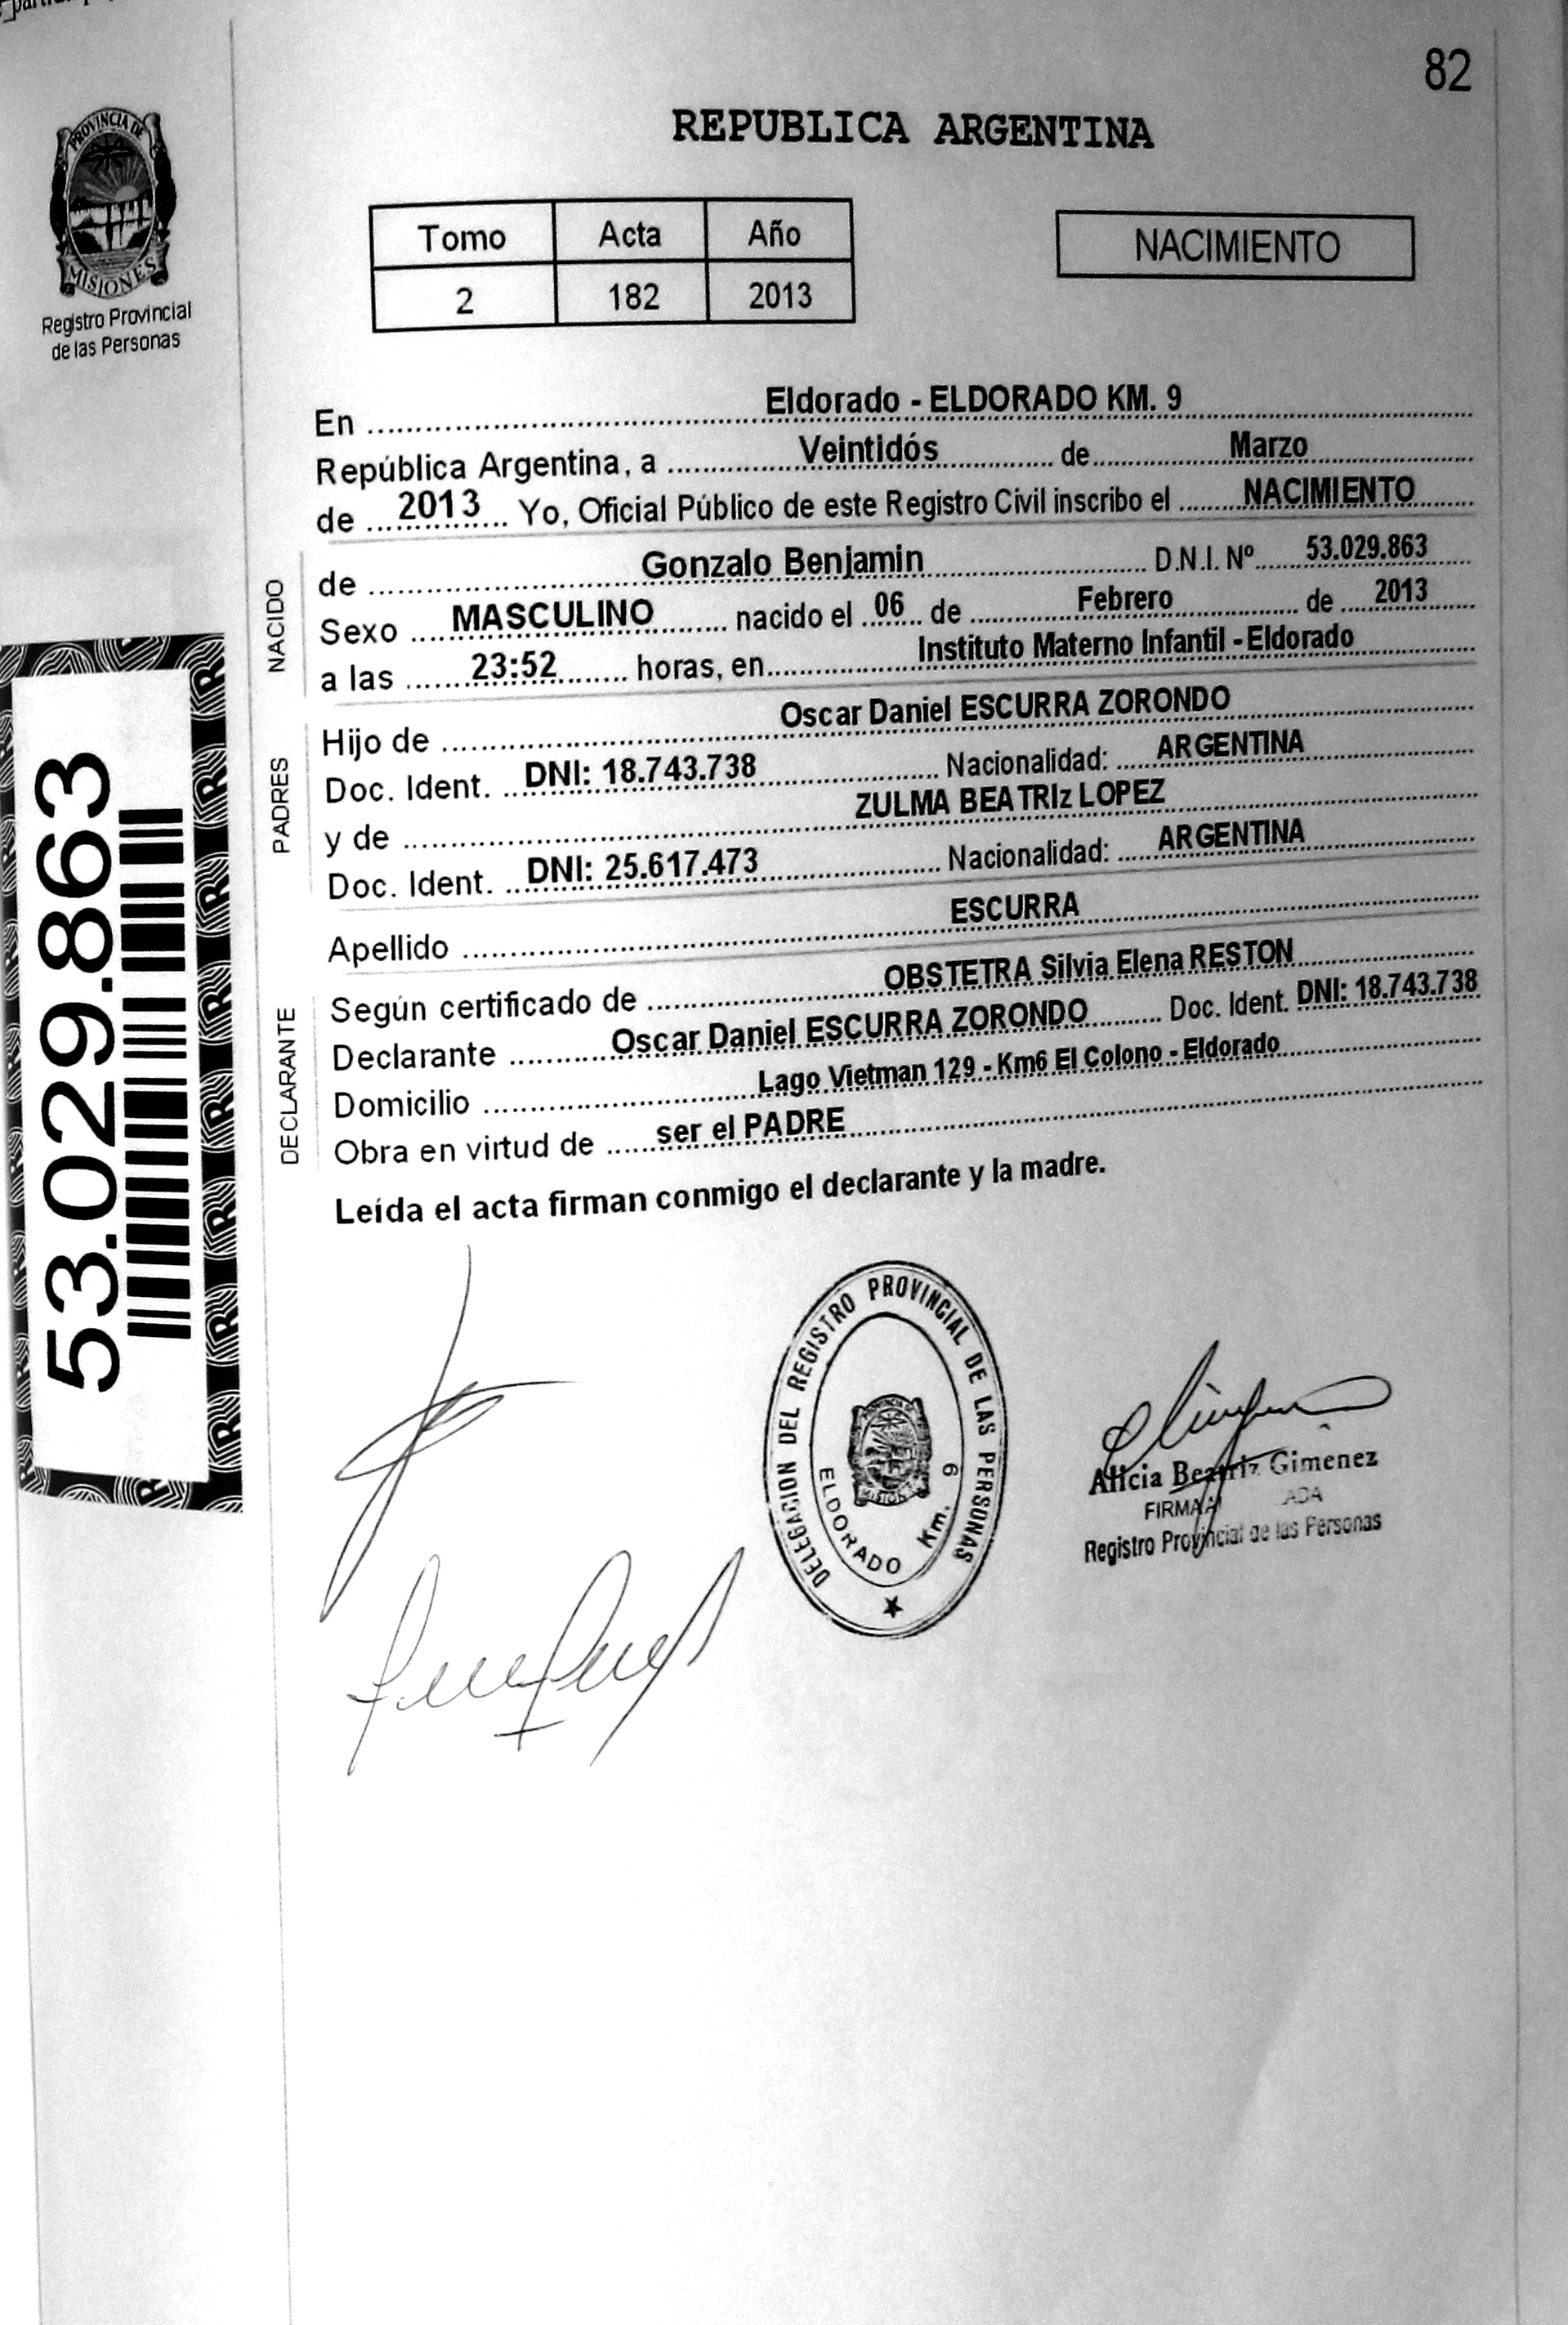 82
PROVINCIA DE
MISIONES
Registro Provincial
de las Personas
REPUBLICA ARGENTINA
Tomo Acta Año
2 182 2013
NACIMIENTO
En Eldorado - ELDORADO KM. 9
República Argentina, a Veintidós de Marzo
de 2013 Yo, Oficial Público de este Registro Civil inscribo el NACIMIENTO
NACIDO
de Gonzalo Benjamin D.N.I. Nº 53.029.863
Sexo MASCULINO nacido el 06 de Febrero de 2013
a las 23:52 horas, en Instituto Materno Infantil - Eldorado
PADRES
Hijo de Oscar Daniel ESCURRA ZORONDO
Doc. Ident. DNI: 18.743.738 Nacionalidad: ARGENTINA
y de ZULMA BEATRIz LOPEZ
Doc. Ident. DNI: 25.617.473 Nacionalidad: ARGENTINA
Apellido ESCURRA
DECLARANTE
Según certificado de OBSTETRA Silvia Elena RESTON
Declarante Oscar Daniel ESCURRA ZORONDO Doc. Ident. DNI: 18.743.738
Domicilio Lago Vietman 129 - Km6 El Colono - Eldorado
Obra en virtud de ser el PADRE
Leída el acta firman conmigo el declarante y la madre.
53.029.863
DELEGACION DEL REGISTRO PROVINCIAL DE LAS PERSONAS
ELDORADO Km. 9
Alicia Beatriz Gimenez
Registro Provincial de las Personas